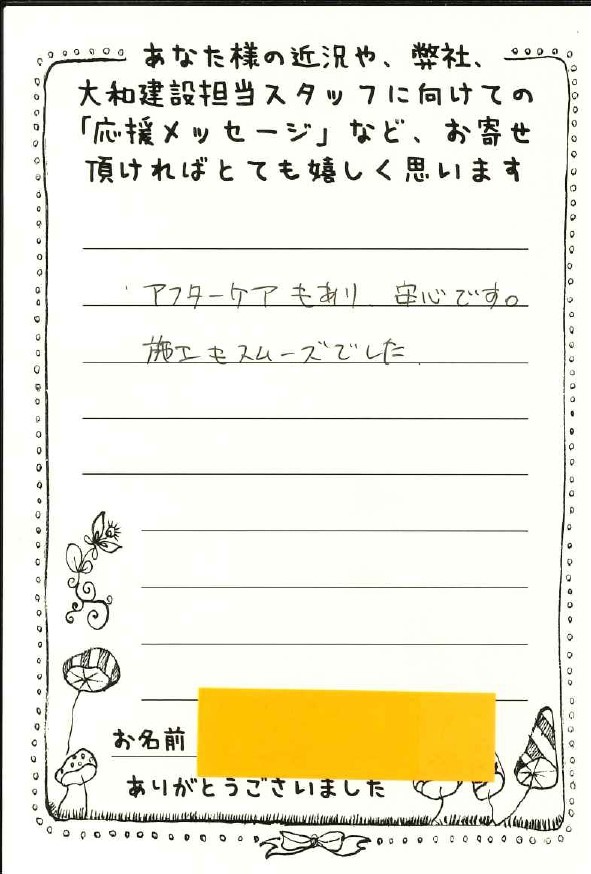 あなた様の近況や、弊社、
大和建設担当スタッフに向けての
「応援メッセージ」など、お寄せ
頂ければとても嬉しく思います
アフターケアもあり 安心です。
施工もスムーズでした
お名前
ありがとうございました